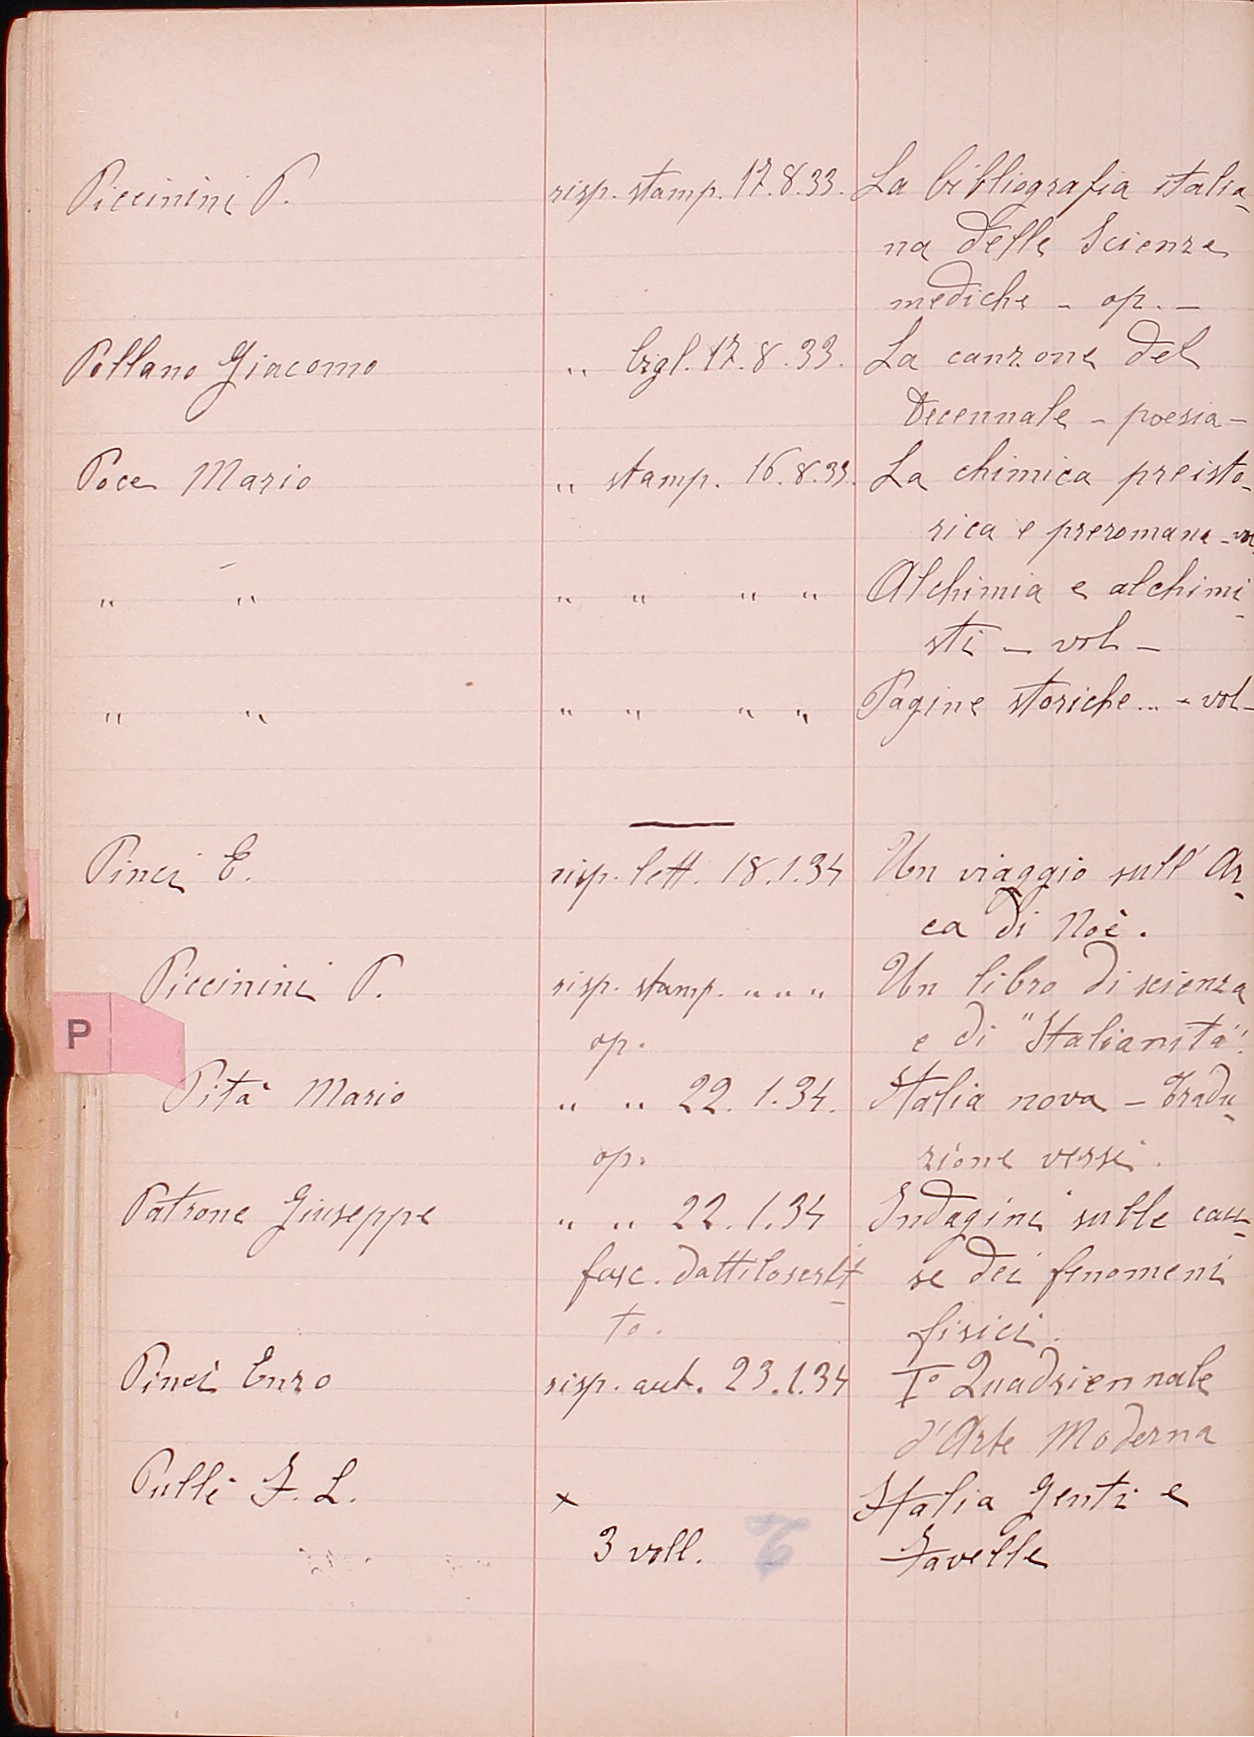 Piccinini P. risp. stamp. 17.8.33. La bibliografia italia-
na delle Scienze
mediche - op. -
Pollano Giacomo " bigl. 17.8.33. La canzone del
Decennale - poesia -
Poce Mario " stamp. 16.8.33. La chimica preisto-
rica e preromana - vol
" " " " " " Alchimia e alchimi-
sti - vol -
" " " " " " Pagine storiche... - vol -
Pinci E. risp. lett. 18.1.34 Un viaggio sull'Ar-
ca di Noè.
Piccinini P. risp. stamp. " " " Un libro di scienza
op. e di "Italianità".
P
Pità Mario " " 22.1.34. Italia nova - Tradu-
op. zione versi.
Patrone Giuseppe " " 22.1.34 Indagini sulle cau-
fasc. dattiloscrit- se dei fenomeni
to. fisici.
Pinci Enzo risp. aut. 23.1.34 Iº Quadriennale
d'Arte Moderna
Pullè F. L. x Italia Genti e
3 voll. Favelle